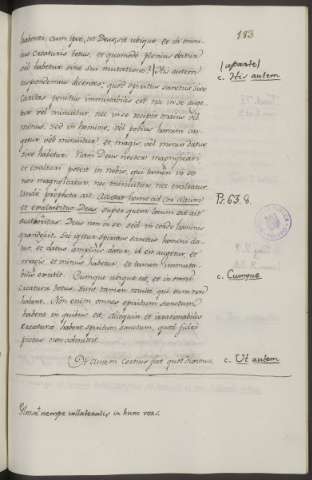 183
habenti, cum ipse, ut Deus, sit ubique, et in omni
creatura totus, et quomodo plenius datur
vel habetur sine sui mutatione? His autem
(aparte)
c. His autem
respondemus dicentes, quod spiritus sanctus sive
Caritas penitus immutabilis est nec in se auge-
tur vel minuitur, nec in se recipit magis vel
minus, sed in homine, vel potius homini au-
getur vel minuitur et magis vel minus datur
sive habetur. Nam Deus dicitur magnificari
et exaltari in nobis, qui tamen in se
nec magnificatur nec exaltatur.
unde propheta ait: Accedet homo ad cor altum
et exaltabitur Deus. super quem locum ait
Ps. 63. 8.
auctoritas: Deus non in se sed in corde hominis
grandescit. Sic igitur spiritus sanctus homini da-
tur, et datus amplius datur, id est augetur, et
magis et minus habetur, et tamen immuta-
bilis existit. Cumque ubique sit, et in omni
c. Cumque
creatura totus, sunt tamen multi qui eum non
habent. Non enim omnes spiritum sanctum
habent in quibus est, alioquin et irrationabiles
creaturæ haberent spiritum sanctum, quod fidei
pietas non admittit.
Ut autem certius fiat quod diximus
c. Ut autem
nempe collateralis in hunc